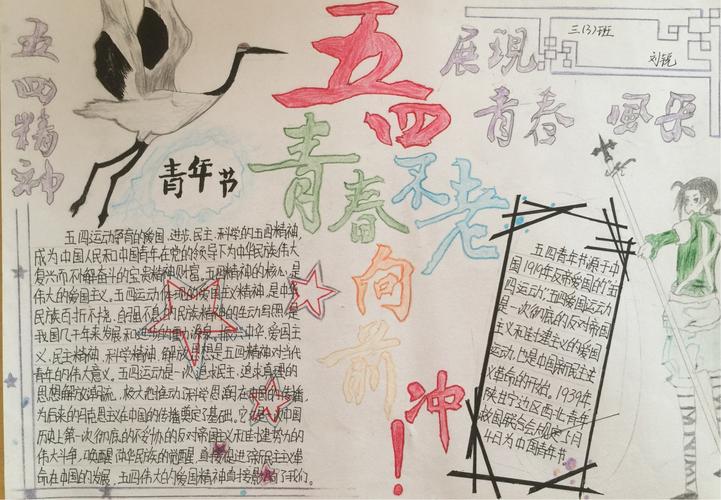 五四精神
五四
青春不老
向前
冲!
展现
青春 风采
三(3)班
刘锐
青年节
五四运动孕育的爱国、进步、民主、科学的五四精神,
成为中国人民和中国青年在党的领导下为中华民族伟大
复兴而不懈奋斗的宝贵精神财富。五四精神的核心是
伟大的爱国主义。五四运动体现的爱国主义精神,是中华
民族百折不挠、自强不息的民族精神的生动写照,是
我国几千年来发展和进步的
爱国主
义、民主精神、科学精神、解放思想是五四精神对当代
青年的伟大意义。五四运动是一次追求民主、追求真理的
思想解放潮流,极大地推动了科学思潮在中国的传播,
为后来的马克思主义在中国的传播奠定了基础。它是中国
历史上第一次彻底的不妥协的反对帝国主义和封建势力的
伟大斗争,唤醒了中华民族的觉醒,直接促进帝民主主义革
命在中国的发展,五四伟大的爱国精神直接影响了我们。
五四青年节源于中
国1919年反帝爱国的"五
四运动,五四爱国运动
是一次彻底的反对帝国
主义和封建主义的爱国
运动,也是中国新民主主
义革命的开始。1939年
陕甘宁边区西北青年
救国联合会规定5月
4日为中国青年节